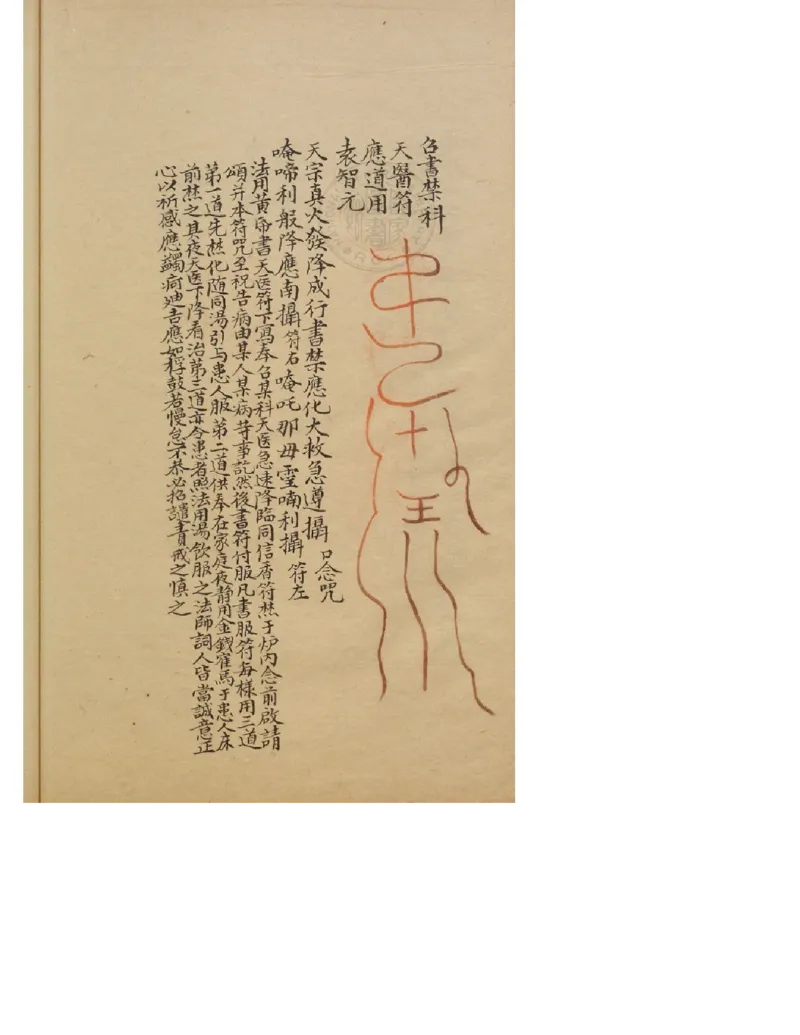 召書禁科
天醫符
應道用
袁智元
天宗真火發降成行書禁應化大救急遵攝 口念咒
唵啼利般降應南攝 符右 唵吒那毋霊喃利攝 符左
法用黃帋書天医符下寫奉召某科天医急速降臨同信香符焚于炉内念前啟請
頌并本符咒至祝告病由某人某病苛事訖然後書符付服凡書服符每樣用三道
第一道先焚化随同湯引与患人服第二道供奉在家庭夜静用金錢寉馬于患人床
前焚之其夜天医下降看治第三道亦令患者照法用湯飲服之法師詞人皆當誠意正
心以祈感應蠲疴迪吉應如桴鼓若慢怠不恭必招譴責戒之慎之
王